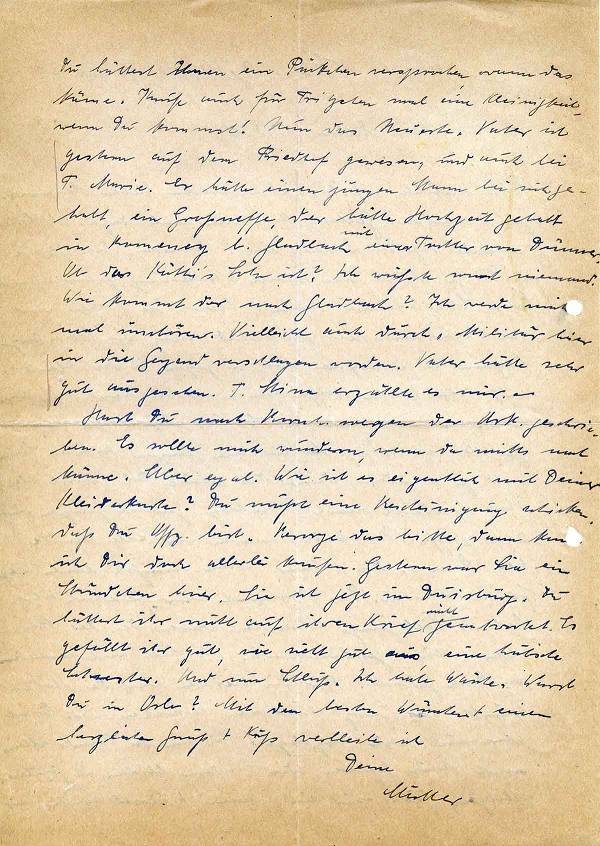 Du hättest Ihnen ein Päckchen versprochen, wenn das
käme. Kaufe auch für Fritzchen mal eine Kleinigkeit,
wenn Du kommst! Nun das Neueste. Vater ist
gestern auf dem Friedhof gewesen, und auch bei
T. Marie. Er hätte einen jungen Mann bei sich ge-
habt, ein Großneffe, der hätte Hochzeit gehabt
in b. Gladbach mit einer Tochter von
Ob das Käthi's Sohn ist? Ich wüßte sonst niemand.
Wie kommt der nach Gladbach? Ich werde mich
mal umhören. Vielleicht auch durch's Militär hier
in die Gegend verschlagen worden. Vater hätte sehr
gut ausgesehen. T. Mina erzählte es mir. –
Hast Du nach wegen der geschrie-
ben. Es sollte mich wundern, wenn da nichts nach
käme. Aber egal. Wie ist es eigentlich mit Deiner
Kleiderkarte? Du mußt eine Bescheinigung schicken,
daß Du Offz. bist. Besorge das bitte, dann kann
ich Dir doch allerlei kaufen. Gestern war ein
Stündchen hier. Sie ist jetzt in Duisburg. Du
hättest ihr nicht auf ihren Brief geantwortet. Es
gefällt ihr gut, sie sieht gut aus eine hübsche
Schwester. Und nun Schluß. Ich habe Wäsche. Warst
Du in Oslo? Mit den besten Wünschen + einen
herzlichen Gruß + Kuß verbleibe ich
Deine
Mutter